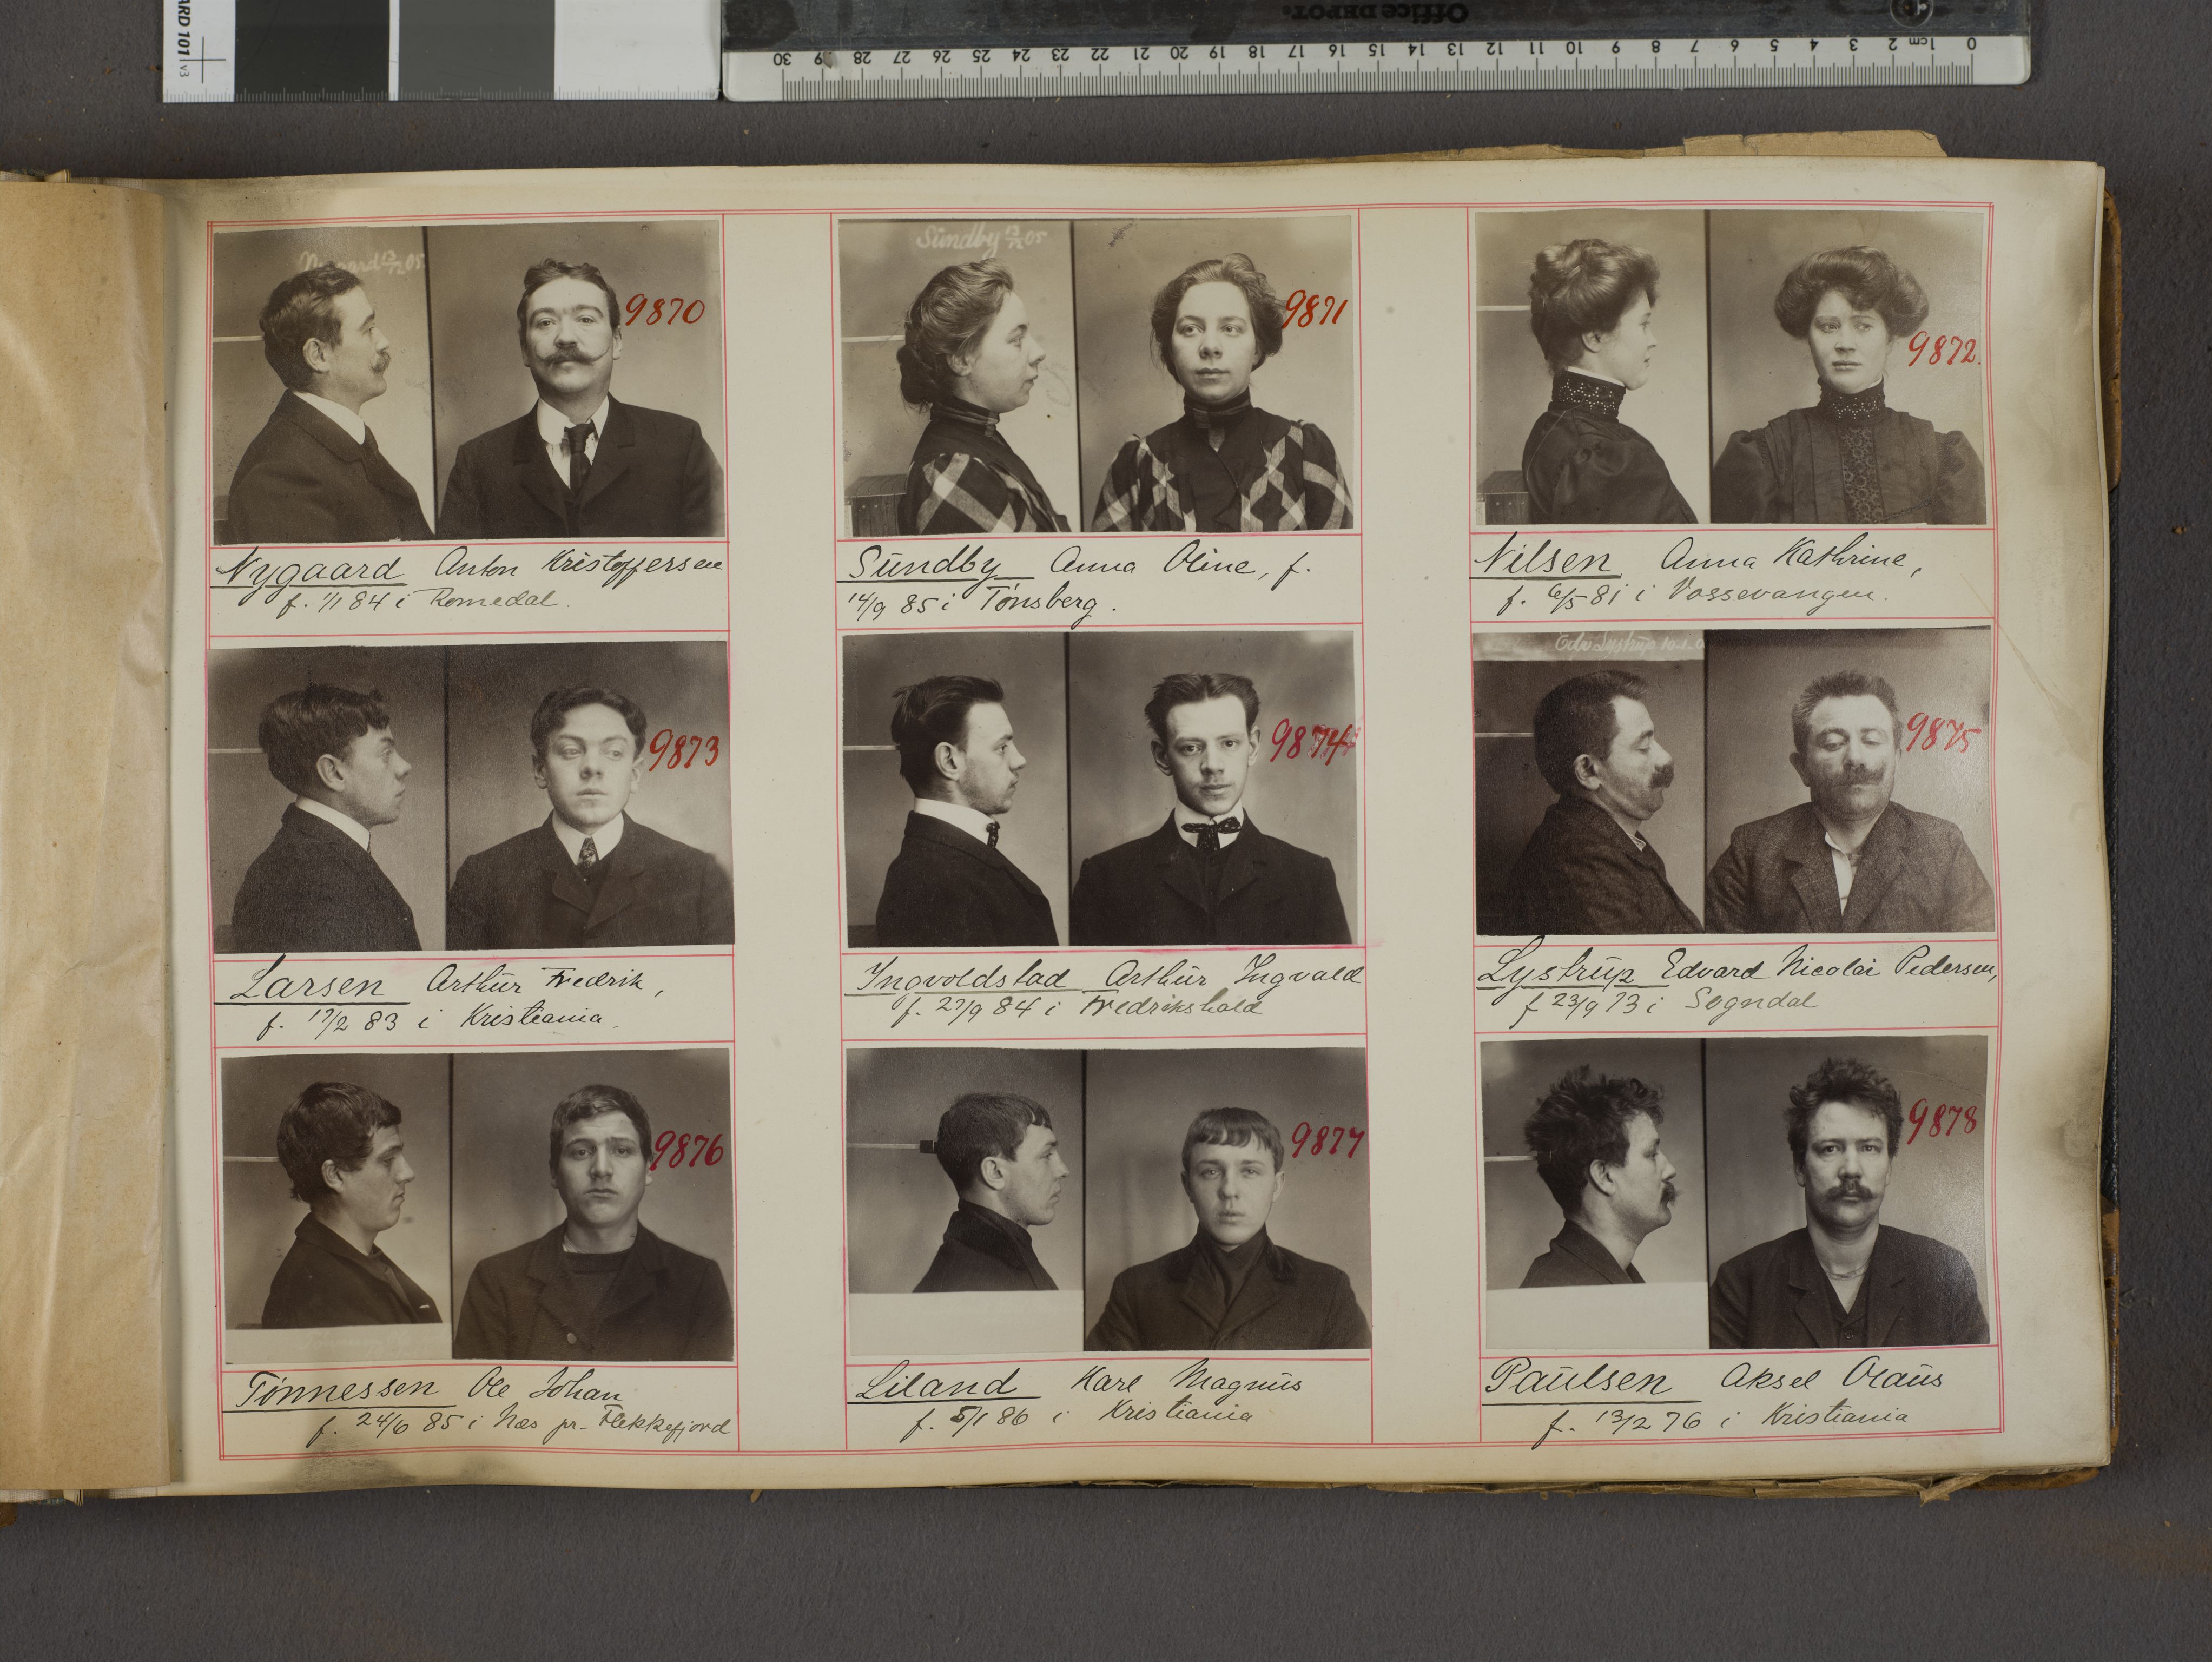 ARD 101 v3
Office DEPOT.
0 1cm 2 3 4 5 6 7 8 9 10 11 12 13 14 15 16 17 18 19 20 21 22 23 24 25 26 27 28 29 30
Nygaard 13/12 05
9870
Sundby 13/12 05
9871
9872.
Nygaard Anton Kristoffersen
f. 1/1 84 i Romedal.
Sundby Anna Oline, f.
14/9 85 i Tønsberg.
Nilsen Anna Kathrine,
f. 6/5 81 i Vossevangen.
9873
9874
Edv Lystrup 10-1-0
9875
Larsen Arthur Fredrik,
f. 17/2 83 i Kristiania.
Ingvoldstad Arthur Ingvald
f. 27/9 84 i Fredrikshald
Lystrup Edvard Nicolai Pedersen,
f 23/9 73 i Sogndal
9876
9877
9878
Tønnessen Ole Johan
f. 24/6 85 i Næs pr. Flekkefjord
Liland Karl Magnus
f. 5/1 86 i Kristiania
Paulsen Aksel Olaus
f. 13/2 76 i Kristiania